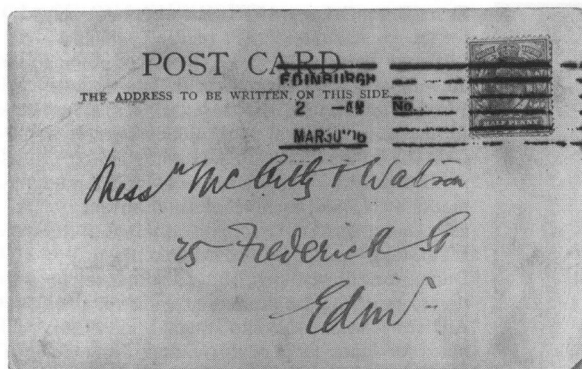 POST CARD
THE ADDRESS TO BE WRITTEN ON THIS SIDE.
EDINBURGH
2 -AM No.
MAR30'16
Messrs & Watson
25 Frederick St
Edinr